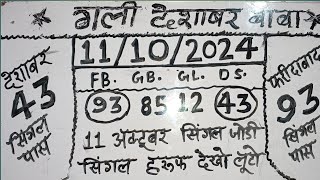 गली देशावर बाबा
11/10/2024
FB. GB. GL. DS.
93 85 12 43
देशावर
43
सिंगल
पास
फरीदाबाद
93
सिंगल
पास
11 अक्टूबर सिंगल जोडी
सिंगल हरूफ देखो लूटो